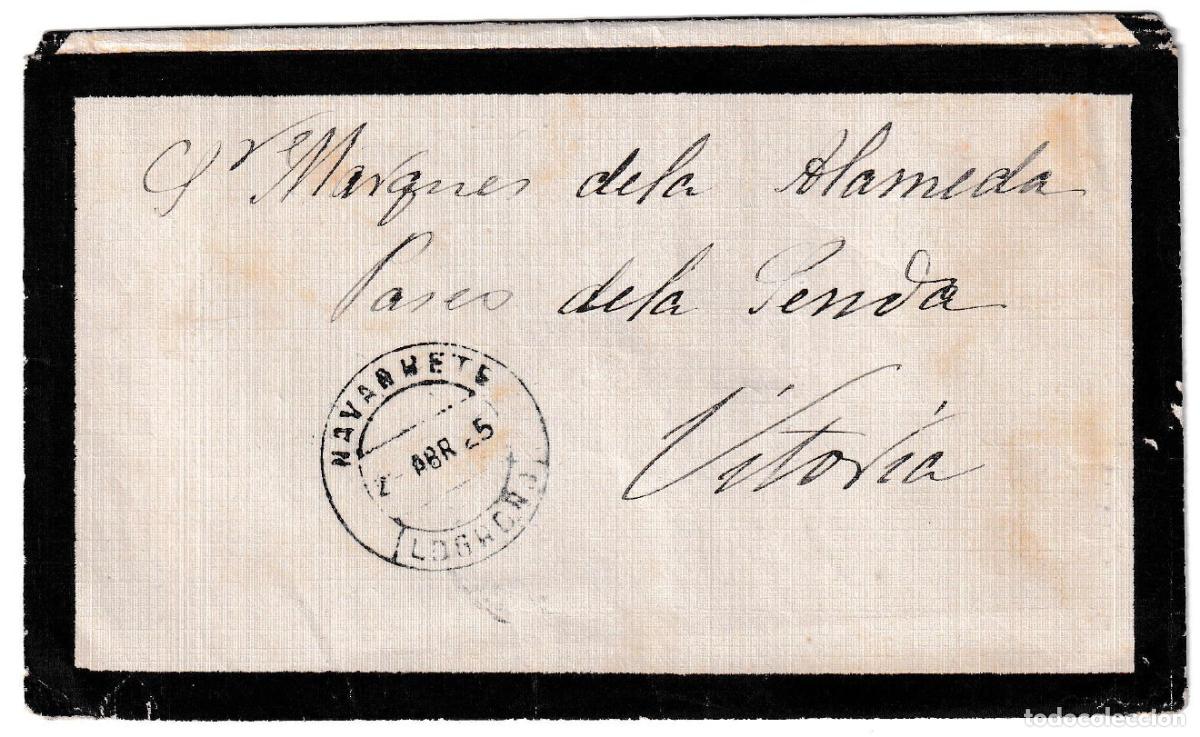 Sr. Marqués dela Alameda
Paseo dela Senda
Vitoria
NAVARRETE
2- ABR 25
(LOGROÑO)
todocoleccion